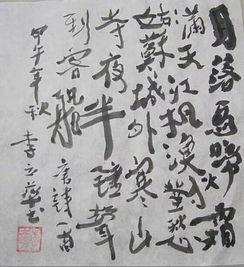 月落烏啼霜
滿天江楓漁火對愁
姑蘇城外寒山
寺夜半鐘聲
到客船 唐詩一首
甲午年秋 李 書